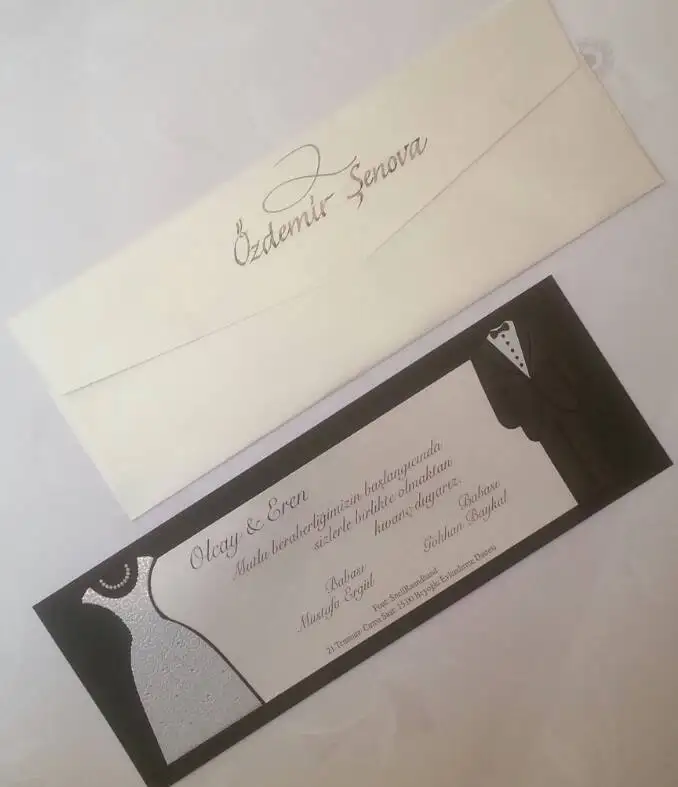 Özdemir Şenova
Olcay & Eren
Mutlu beraberliğimizin başlangıcında
sizlerle birlikte olmaktan
kıvanç duyarız.
Babası
Mustafa Ergül
Babası
Gökhan Baykal
Font: SnellRoundhand
21 Temmuz Cuma Saat: 15.00 Beyoğlu Evlendirme Dairesi